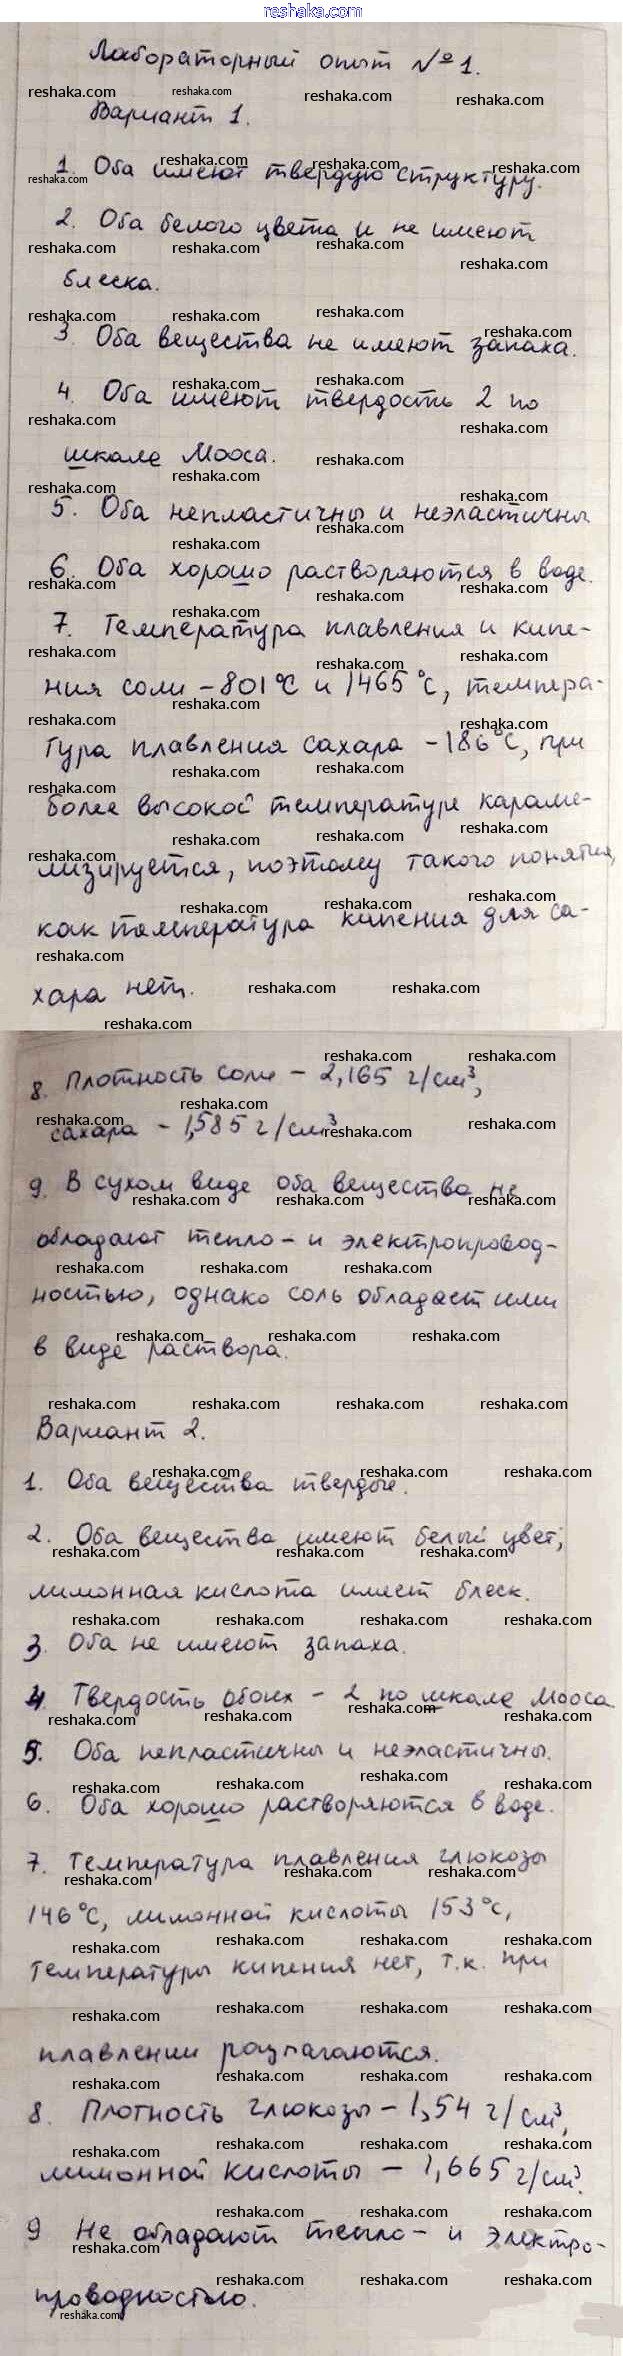 reshaka.com
Лабораторный опыт №1.
Вариант 1.
1. Оба имеют твердую структуру.
2. Оба белого цвета и не имеют
блеска.
3. Оба вещества не имеют запаха.
4. Оба имеют твердость 2 по
шкале Мооса.
5. Оба непластичны и неэластичны
6. Оба хорошо растворяются в воде.
7. Температура плавления и кипе-
ния соли - 801°C и 1465°C, темпера-
тура плавления сахара - 186°C, при
более высокой температуре караме-
лизируется, поэтому такого понятия,
как температура кипения для са-
хара нет.
8. Плотность соли - 2,165 г/см³,
сахара - 1,585 г/см³
9. В сухом виде оба вещества не
обладают тепло- и электропровод-
ностью, однако соль обладает ими
в виде раствора.
Вариант 2.
1. Оба вещества твердые.
2. Оба вещества имеют белый цвет,
лимонная кислота имеет блеск.
3. Оба не имеют запаха.
4. Твердость обоих - 2 по шкале Мооса
5. Оба непластичны и неэластичны.
6. Оба хорошо растворяются в воде.
7. Температура плавления глюкозы
146°C, лимонной кислоты 153°C,
температуры кипения нет, т.к. при
плавлении разлагаются.
8. Плотность глюкозы - 1,54 г/см³,
лимонной кислоты - 1,665 г/см³.
9 Не обладают тепло- и электро-
проводностью.